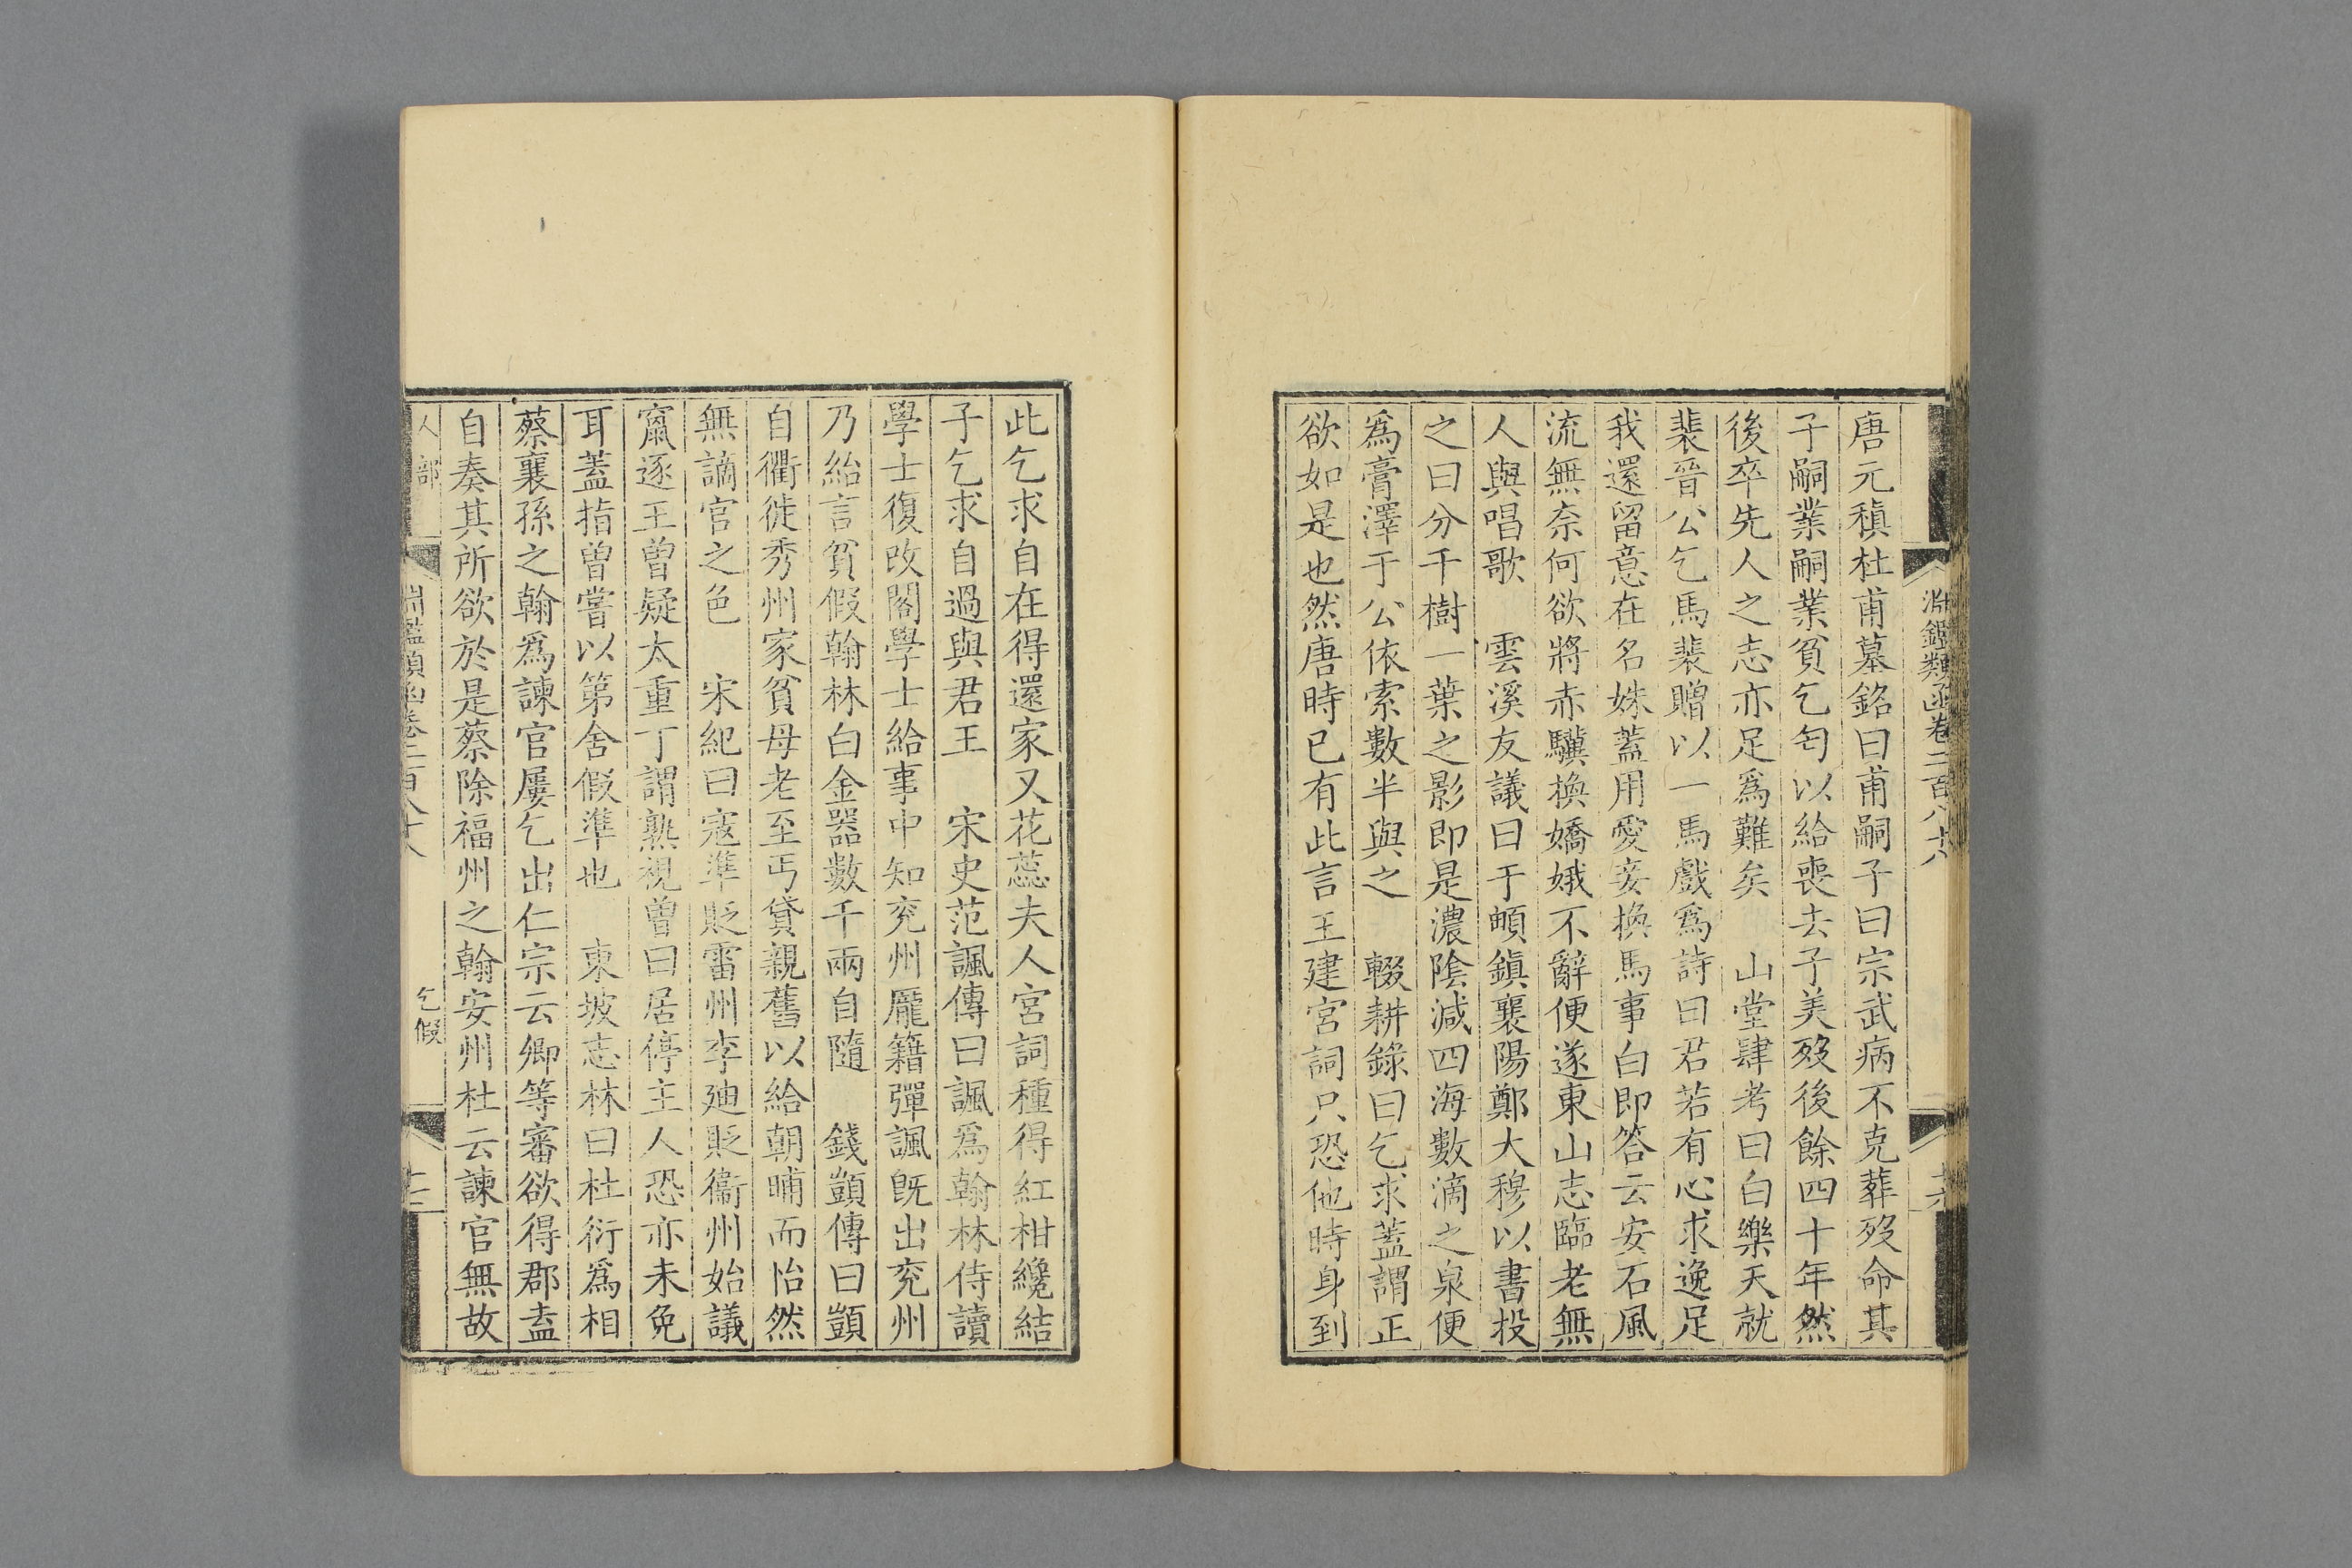 淵鑑類函卷二百八十八
唐元稹杜甫墓銘曰甫嗣子曰宗武病不克葬歿命其
子嗣業嗣業貧乞匄以給喪去子美歿後餘四十年然
後卒先人之志亦足爲難矣　山堂肆考曰白樂天就
裴晉公乞馬裴贈以一馬戲爲詩曰君若有心求逸足
我還留意在名姝蓋用愛妾換馬事白即答云安石風
流無奈何欲將赤驥換嬌娥不辭便送東山志臨老無
人與唱歌　雲溪友議曰于頔鎮襄陽鄭大穆以書投
之曰分千樹一葉之影即是濃陰減四海數滴之泉便
爲膏澤于公依索數半與之　輟耕錄曰乞求蓋謂正
欲如是也然唐時已有此言王建宮詞只恐他時身到
此乞求自在得還家又花蕊夫人宮詞種得紅柑纔結
子乞求自過與君王　宋史范諷傳曰諷爲翰林侍讀
學士復改閣學士給事中知兗州龐籍彈諷既出兗州
乃紿言貧假翰林白金器數千兩自隨　錢顗傳曰顗
自衢徙秀州家貧母老至丐貸親舊以給朝晡而怡然
無謫官之色　宋紀曰寇準貶雷州李廸貶衞州始議
竄逐王曾疑太重丁謂熟視曾曰居停主人恐亦未免
耳蓋指曾嘗以第舍假準也　東坡志林曰杜衍爲相
蔡襄孫之翰爲諫官屢乞出仁宗云卿等審欲得郡盍
自奏其所欲於是蔡除福州之翰安州杜云諫官無故
人部
淵鑑類函卷二百八十八
乞假